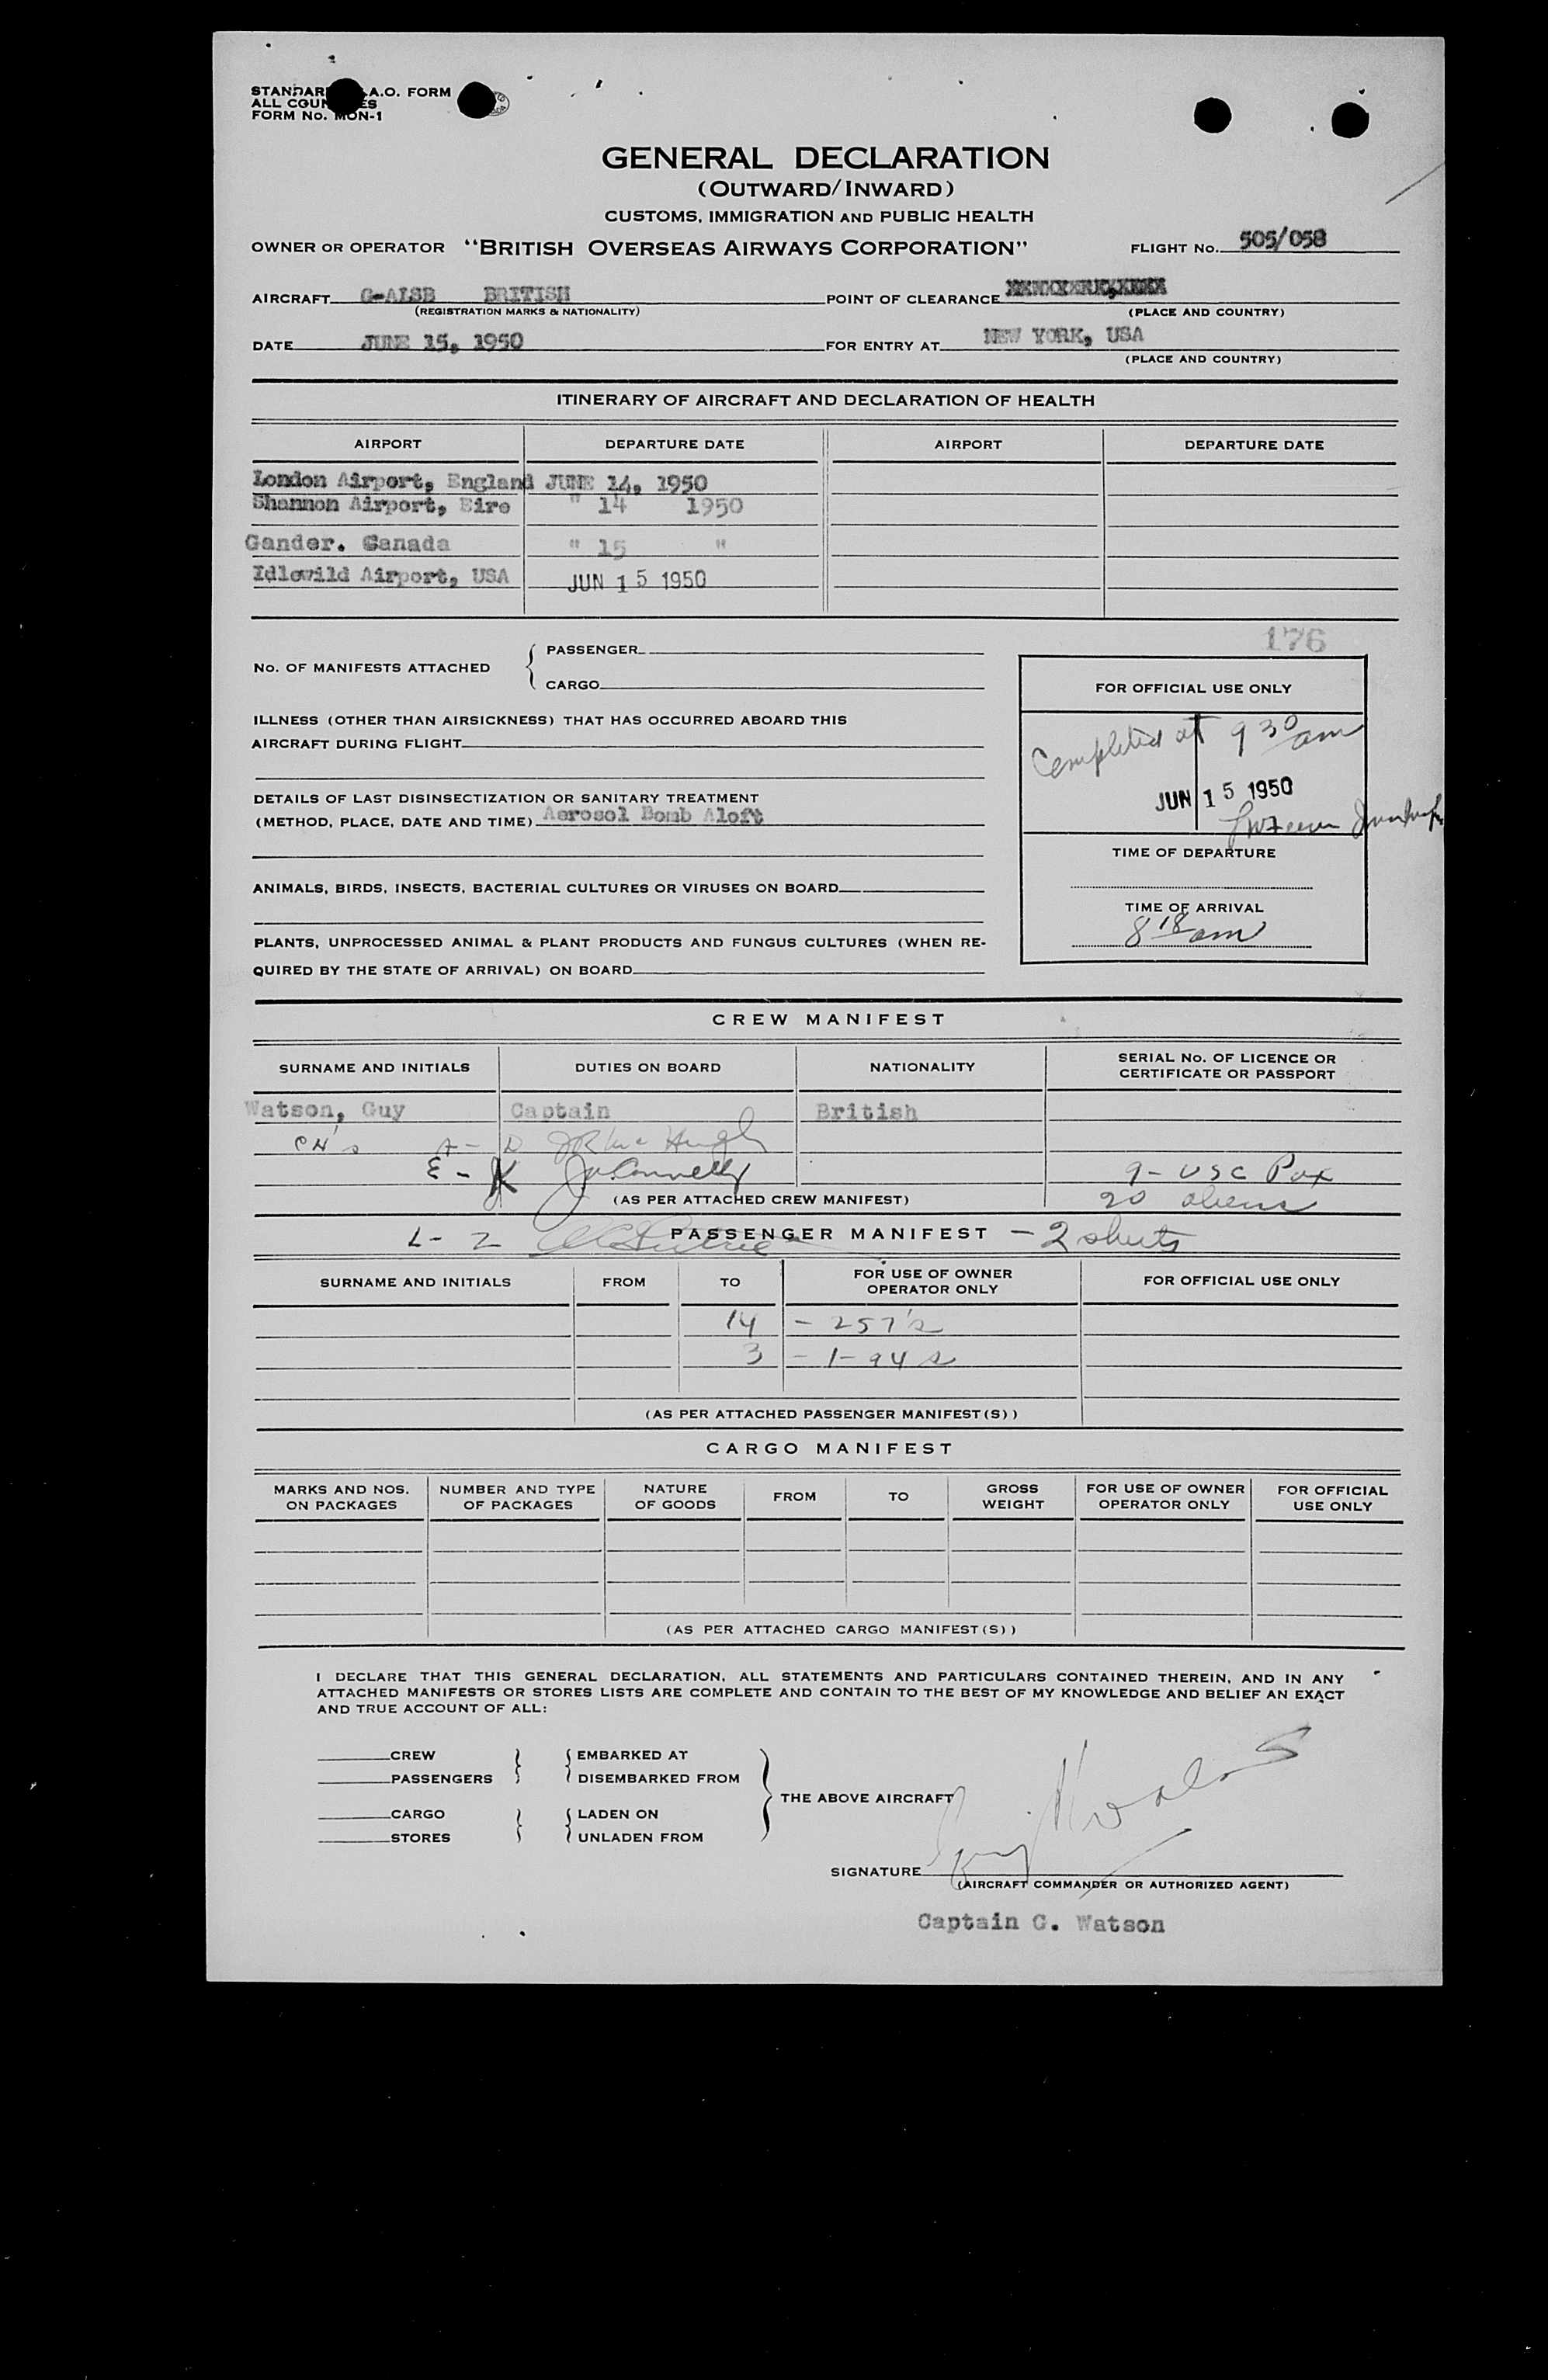 STANDARD A.O. FORM
ALL COUNTRIES
FORM No. MON-1
GENERAL DECLARATION
(OUTWARD/INWARD)
CUSTOMS, IMMIGRATION AND PUBLIC HEALTH
OWNER OR OPERATOR "BRITISH OVERSEAS AIRWAYS CORPORATION" FLIGHT No. 505/058
AIRCRAFT G-ALSB BRITISH POINT OF CLEARANCE
(REGISTRATION MARKS & NATIONALITY) (PLACE AND COUNTRY)
DATE JUNE 15, 1950 FOR ENTRY AT NEW YORK, USA
(PLACE AND COUNTRY)
ITINERARY OF AIRCRAFT AND DECLARATION OF HEALTH
AIRPORT DEPARTURE DATE AIRPORT DEPARTURE DATE
London Airport, England JUNE 14, 1950
Shannon Airport, Eire " 14 1950
Gander. Canada " 15 "
Idlewild Airport, USA JUN 15 1950
176
No. OF MANIFESTS ATTACHED { PASSENGER
CARGO
FOR OFFICIAL USE ONLY
ILLNESS (OTHER THAN AIRSICKNESS) THAT HAS OCCURRED ABOARD THIS
AIRCRAFT DURING FLIGHT
Completed at 9 30 am
JUN 15 1950
DETAILS OF LAST DISINSECTIZATION OR SANITARY TREATMENT
(METHOD, PLACE, DATE AND TIME) Aerosol Bomb Aloft
TIME OF DEPARTURE
ANIMALS, BIRDS, INSECTS, BACTERIAL CULTURES OR VIRUSES ON BOARD
TIME OF ARRIVAL
8 18 am
PLANTS, UNPROCESSED ANIMAL & PLANT PRODUCTS AND FUNGUS CULTURES (WHEN RE-
QUIRED BY THE STATE OF ARRIVAL) ON BOARD
CREW MANIFEST
SURNAME AND INITIALS DUTIES ON BOARD NATIONALITY SERIAL No. OF LICENCE OR
CERTIFICATE OR PASSPORT
Watson, Guy Captain British
A - D JR Mc Hugh
E - K J Connelly 9 - USC Pax
(AS PER ATTACHED CREW MANIFEST) 20 aliens
L - Z PASSENGER MANIFEST - 2 sheets
SURNAME AND INITIALS FROM TO FOR USE OF OWNER
OPERATOR ONLY FOR OFFICIAL USE ONLY
14 - 257's
3 - I-94s
(AS PER ATTACHED PASSENGER MANIFEST(S))
CARGO MANIFEST
MARKS AND NOS.
ON PACKAGES NUMBER AND TYPE
OF PACKAGES NATURE
OF GOODS FROM TO GROSS
WEIGHT FOR USE OF OWNER
OPERATOR ONLY FOR OFFICIAL
USE ONLY
(AS PER ATTACHED CARGO MANIFEST(S))
I DECLARE THAT THIS GENERAL DECLARATION, ALL STATEMENTS AND PARTICULARS CONTAINED THEREIN, AND IN ANY
ATTACHED MANIFESTS OR STORES LISTS ARE COMPLETE AND CONTAIN TO THE BEST OF MY KNOWLEDGE AND BELIEF AN EXACT
AND TRUE ACCOUNT OF ALL:
CREW EMBARKED AT
PASSENGERS DISEMBARKED FROM
THE ABOVE AIRCRAFT
CARGO LADEN ON
STORES UNLADEN FROM
SIGNATURE Guy Watson
(AIRCRAFT COMMANDER OR AUTHORIZED AGENT)
Captain G. Watson